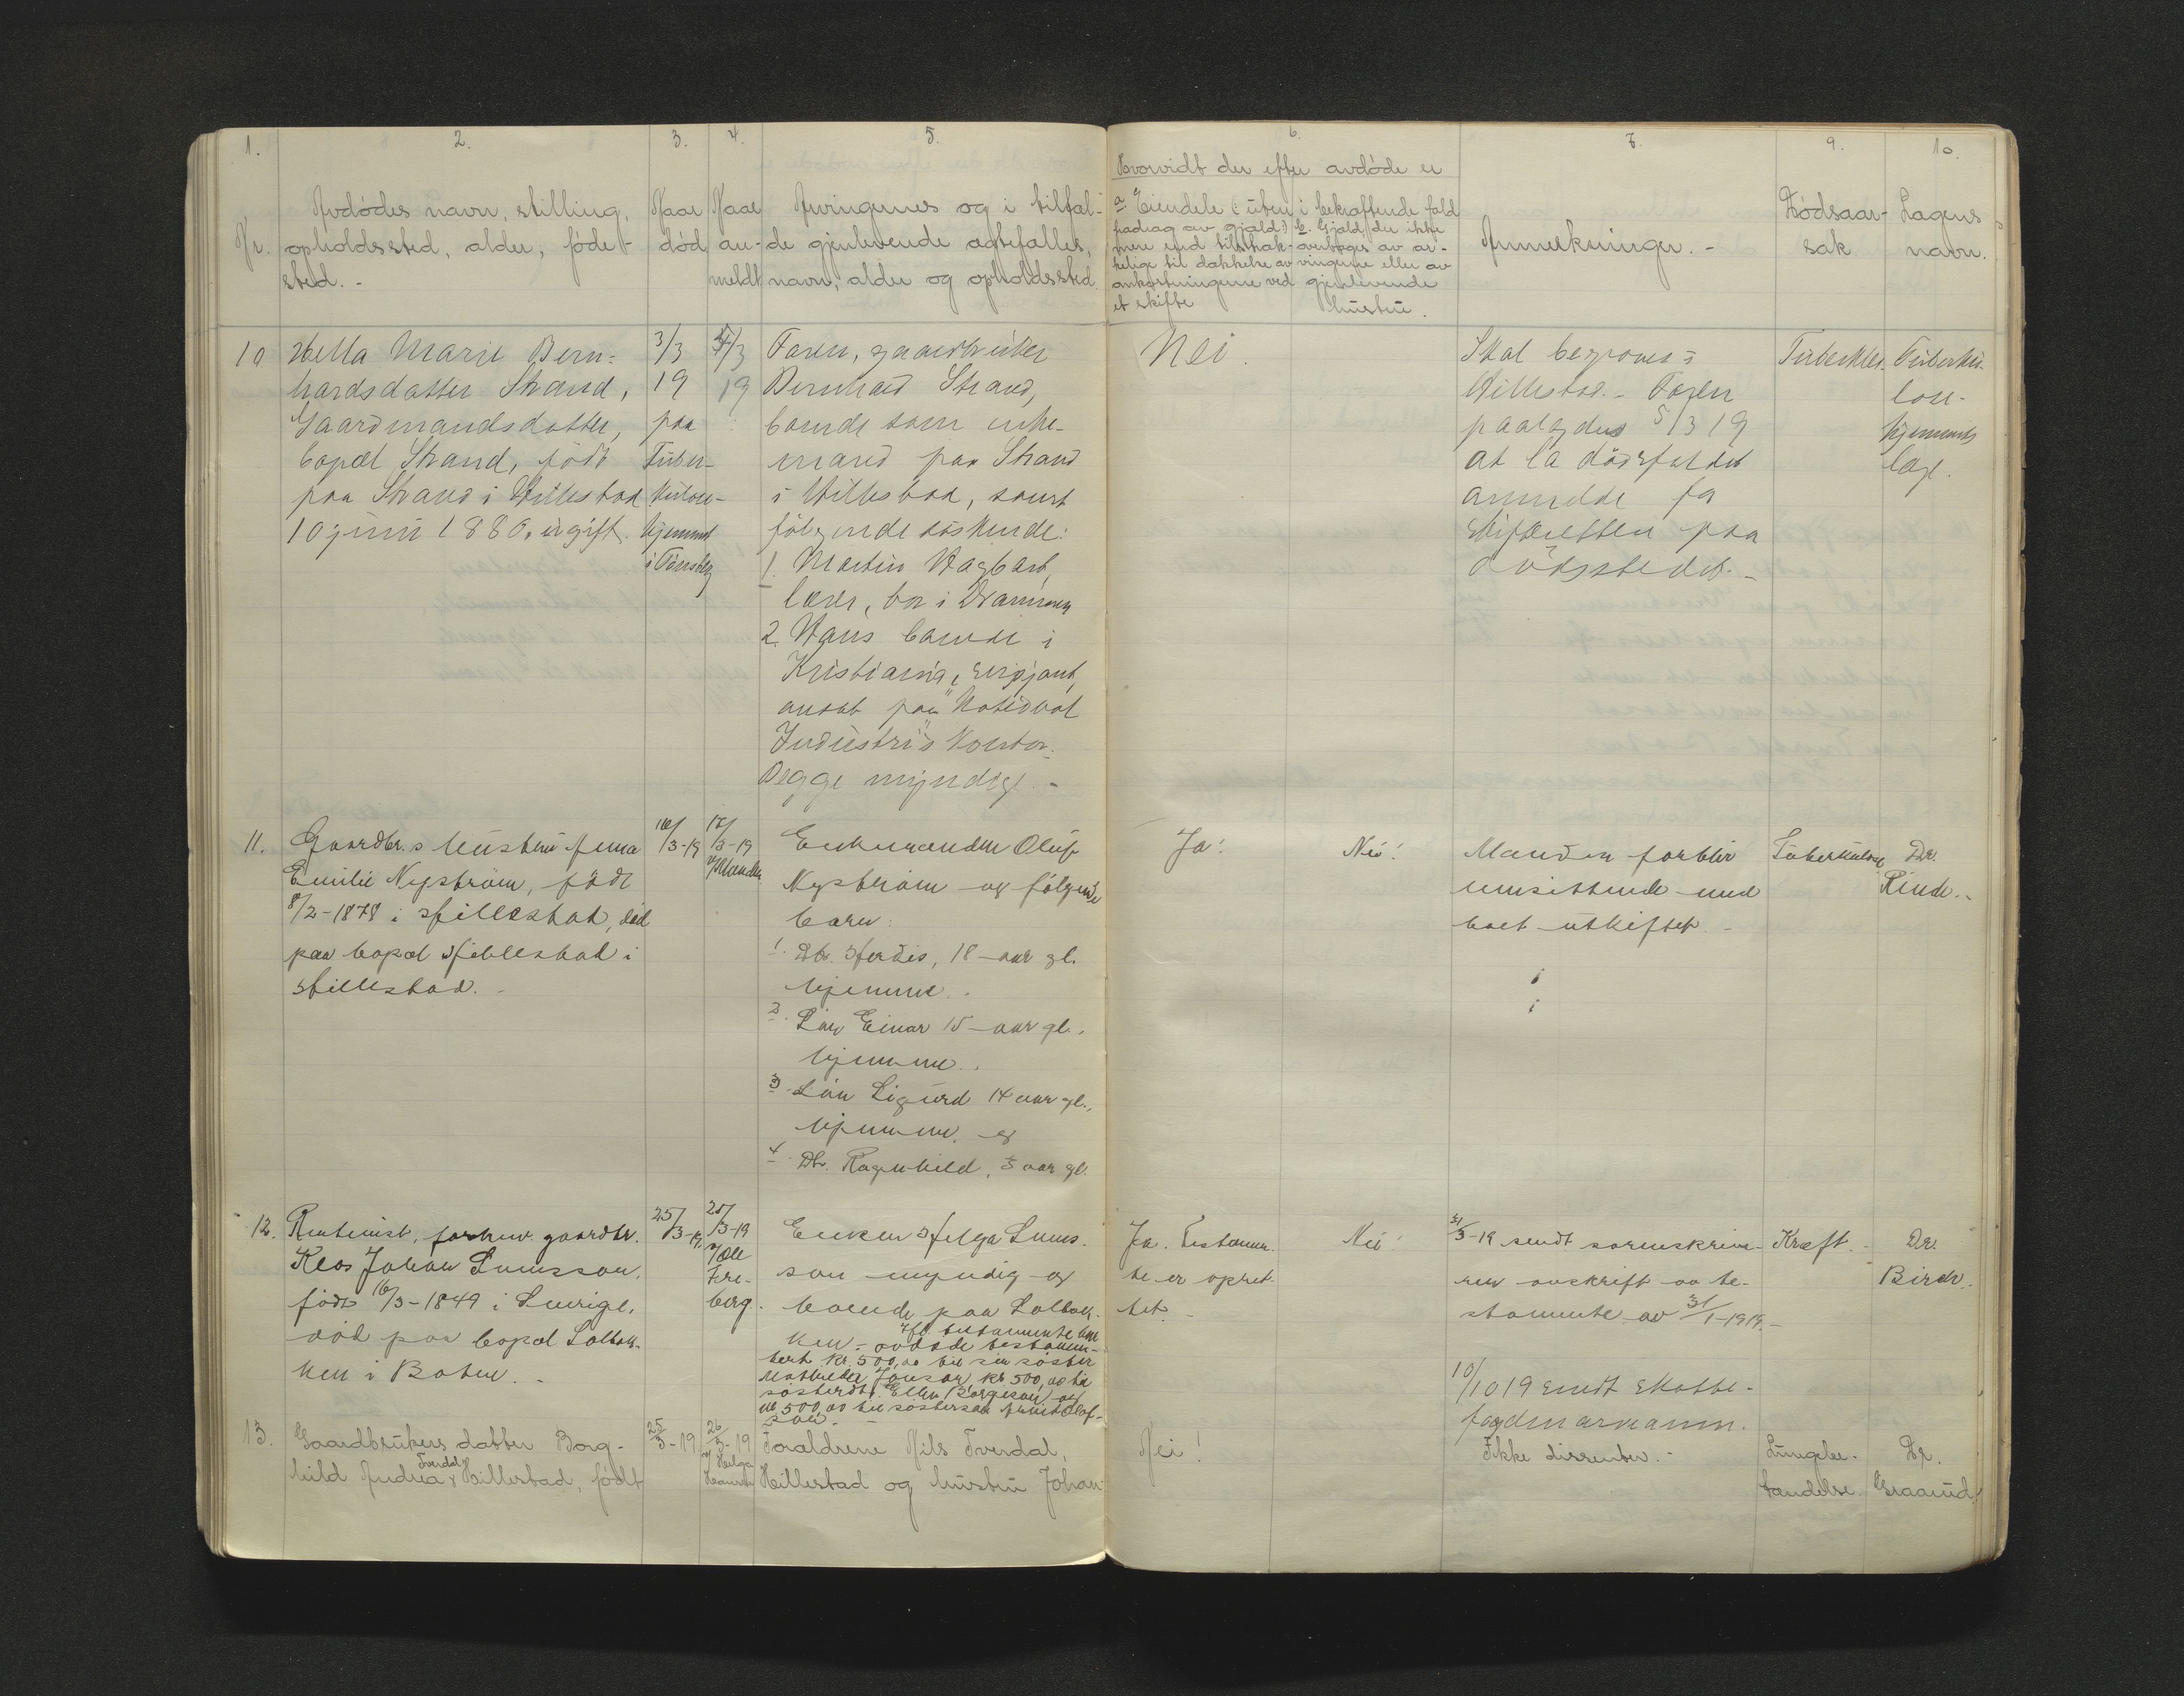 1.
2.
3.
4.
5.
6.
7.
9.
10.
Nr.
Avdødes navn, stilling,
opholdssted, alder, føde-
sted. -
Naar
død
Naar
an-
meldt
Arvingernes og i tilfæl-
de gjenlevende ægtefælles,
navn, alder og opholdssted.
Hvorvidt der efter avdøde er
a. Eiendele (: uten i bekræftende fald
fradrag av gjæld:)
mere end tilstræk-
kelige til dækkelse av
omkostningerne ved
et skifte
b. Gjæld, der ikke
overtages av ar-
vingerne eller av
gjenlevende
hustru.
Anmerkninger. -
Dødsaar-
sak
Lægens
navn.
10
Hella Marie Bern-
hardsdatter Strand,
Gaardmandsdatter,
bopæl Strand, født
paa Strand i Hillestad
10 juni 1880, ugift.
3/3
19
paa
Tuber-
kulose-
hjemmet
i Tønsberg
/3
19
Faren, gaardbruker
Bernhard Strand,
boende som enke-
mand paa Strand
i Hillestad, samt
følgende søskende:
1. Martin Hagbart,
lærer, bor i Drammen
2. Hans boende i
Kristiania, sersjant,
ansat paa "National
Industri"s kontor.
Begge myndige. -
Nei.
Skal begraves i
Hillestad. - Faren
paalagdes 5/3 19
at la dødsfaldet
anmelde fa
skifteretten paa
dødsstedet. -
Tuberkler.
Tuberku-
lose-
hjemmets
læge.
11.
Gaardbr.s hustru Anna
Emilie Nystrøm, født
8/2-1878 i Hillestad, død
paa bopæl Hillestad i
Hillestad. -
16/3-19
17/3-19
v/Manden
Enkemanden Oluf
Nystrøm og følgende
barn:
1. Dtr. Herdis, 18 aar gl.
hjemme.
2. Søn Einar 15 aar gl.,
hjemme.
3. Søn Sigurd 14 aar gl.,
hjemme. og
4. Dtr. Ragnhild, 3 aar gl.
Ja!
Nei!
Manden forblir
hensittende med
boet uskiftet. -
Tuberkulose
Dr.
Rinde.
12.
Rentenist, forhenv. gaardbr.
Klas Johan Svensson,
født 16/3-1849 i Sverige,
død paa bopæl Solbak-
ken i Botne. -
25/3-19
25/3-19
v/Ole
Fre-
berg.
Enken Helga Svens-
son myndig og
boende paa Solbak-
ken. - Ifl. testamente har
avdøde testamen-
tert kr. 500,00 til sin søster
Mathilda Jonson, kr 500,00 til
søsterdtr. Ellen Børgeson og
kr 500,00 til søstersøn
Ja. Testamen-
te er opret-
tet. -
Nei!
31/3-19 sendt sorenskrive-
ren avskrift av te-
stamente av 31/1-1919. -
10/10 19 sendt skatte-
fogden
Kræft. -
Dr.
Birch.
13.
Gaardbrukers datter Borg-
hild Andrea Tverdal Hillestad, født
25/3-19
26/3-19
v/Helge
Foræeldrene Nils Tverdal,
Hillestad og hustru Johan-
Nei!
Ikke dissenter. -
Lungebe-
tændelse.
Dr.
Graarud.